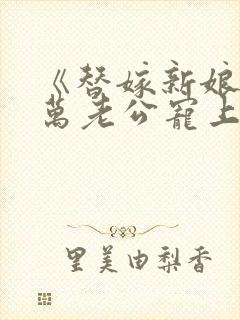 《替嫁新娘
萬老公寵上
里美由梨香